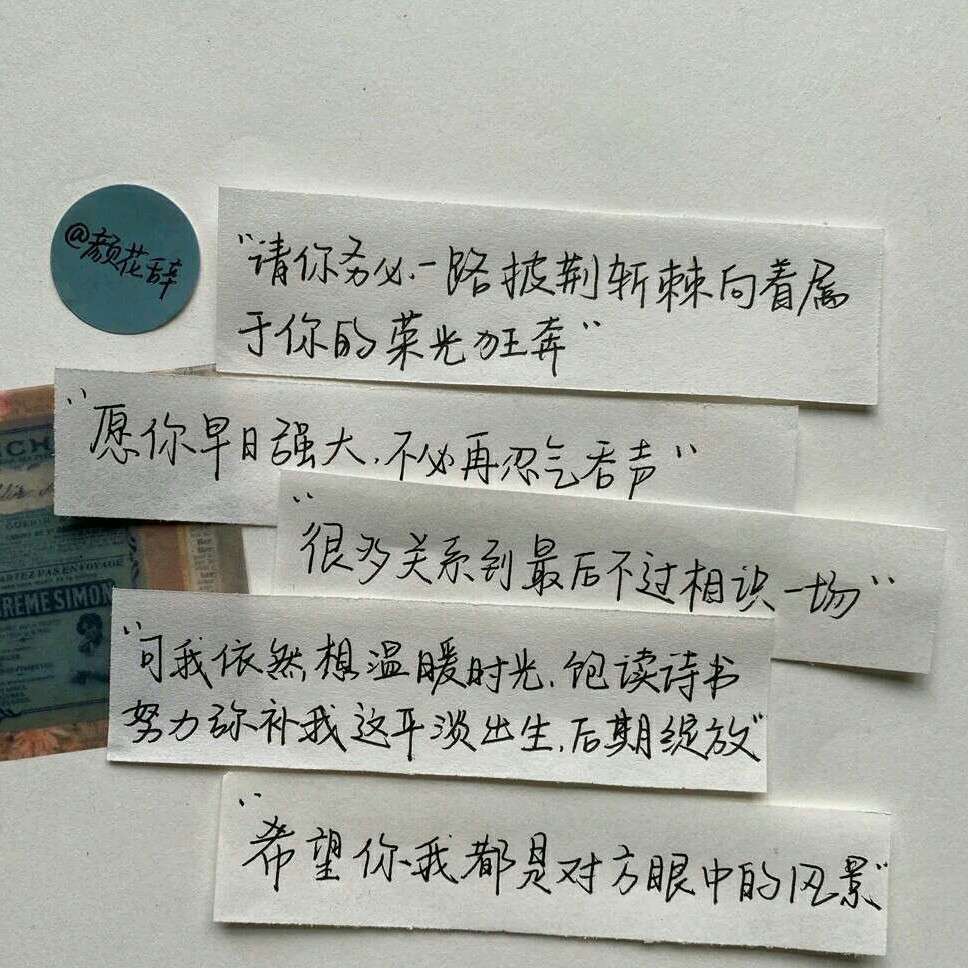 @颜花辞
"请你务必一路披荆斩棘向着属
于你的荣光狂奔"
"愿你早日强大,不必再忍气吞声"
"很多关系到最后不过相识一场"
"可我依然想温暖时光,饱读诗书
努力弥补我这平淡出生,后期绽放"
"希望你我都是对方眼中的风景"
ARTEZ PAS EN VOYAGE
REME SIMON